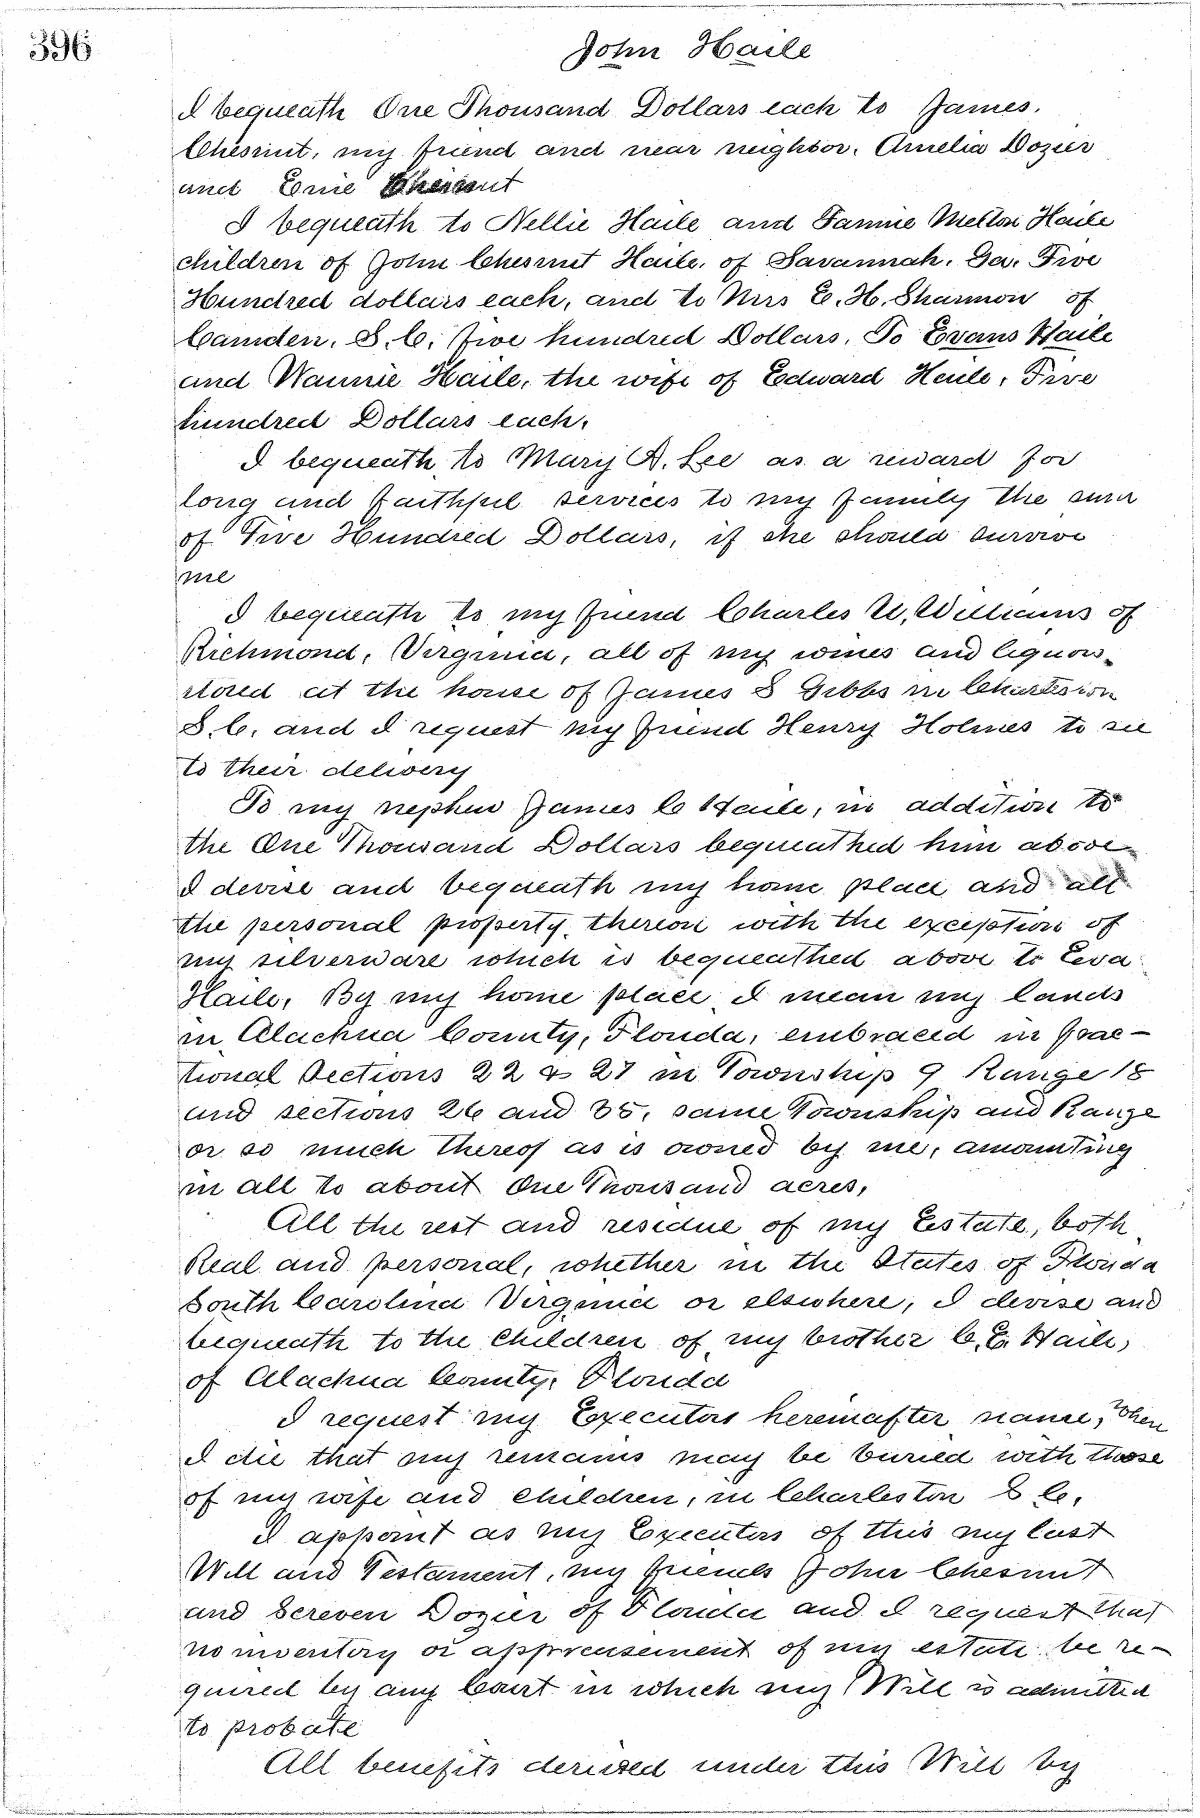 396
John Haile
I bequeath One Thousand Dollars each to James.
Chesnut, my friend and near neighbor. Amelia Dozier
and Erie Chesnut
I bequeath to Nellie Haile and Fannie Melton Haile
children of John Chesnut Haile, of Savannah, Ga. Five
Hundred dollars each, and to Mrs E. H. Shannon of
Camden, S. C. five hundred Dollars. To Evans Haile
and Wannie Haile, the wife of Edward Haile, Five
hundred Dollars each.
I bequeath to Mary A. Lee as a reward for
long and faithful services to my family the sum
of Five Hundred Dollars, if she should survive
me
I bequeath to my friend Charles U. Williams of
Richmond, Virginia, all of my wines and liquors
stored at the house of James S Gibbs in Charleston
S. C. and I request my friend Henry Holmes to see
to their delivery
To my nephew James C Haile, in addition to
the One Thousand Dollars bequeathed him above
I devise and bequeath my home place and all
the personal property thereon with the exception of
my silverware which is bequeathed above to Eva
Haile, By my home place I mean my lands
in Alachua County, Florida, embraced in frac-
tional Sections 22 & 27 in Township 9 Range 18
and sections 26 and 35, same Township and Range
or so much thereof as is owned by me, amounting
in all to about One Thousand acres,
All the rest and residue of my Estate, both
Real and personal, whether in the States of Florida
South Carolina Virginia or elsewhere, I devise and
bequeath to the children of my brother C. E. Haile,
of Alachua County, Florida
I request my Executors hereinafter name, when
I die that my remains may be buried with those
of my wife and children, in Charleston S C.
I appoint as my Executors of this my last
Will and Testament, my friends John Chesnut
and Screven Dozier of Florida and I request that
no inventory or appraisement of my estate be re-
quired by any Court in which my Will is admitted
to probate
All benefits derived under this Will by